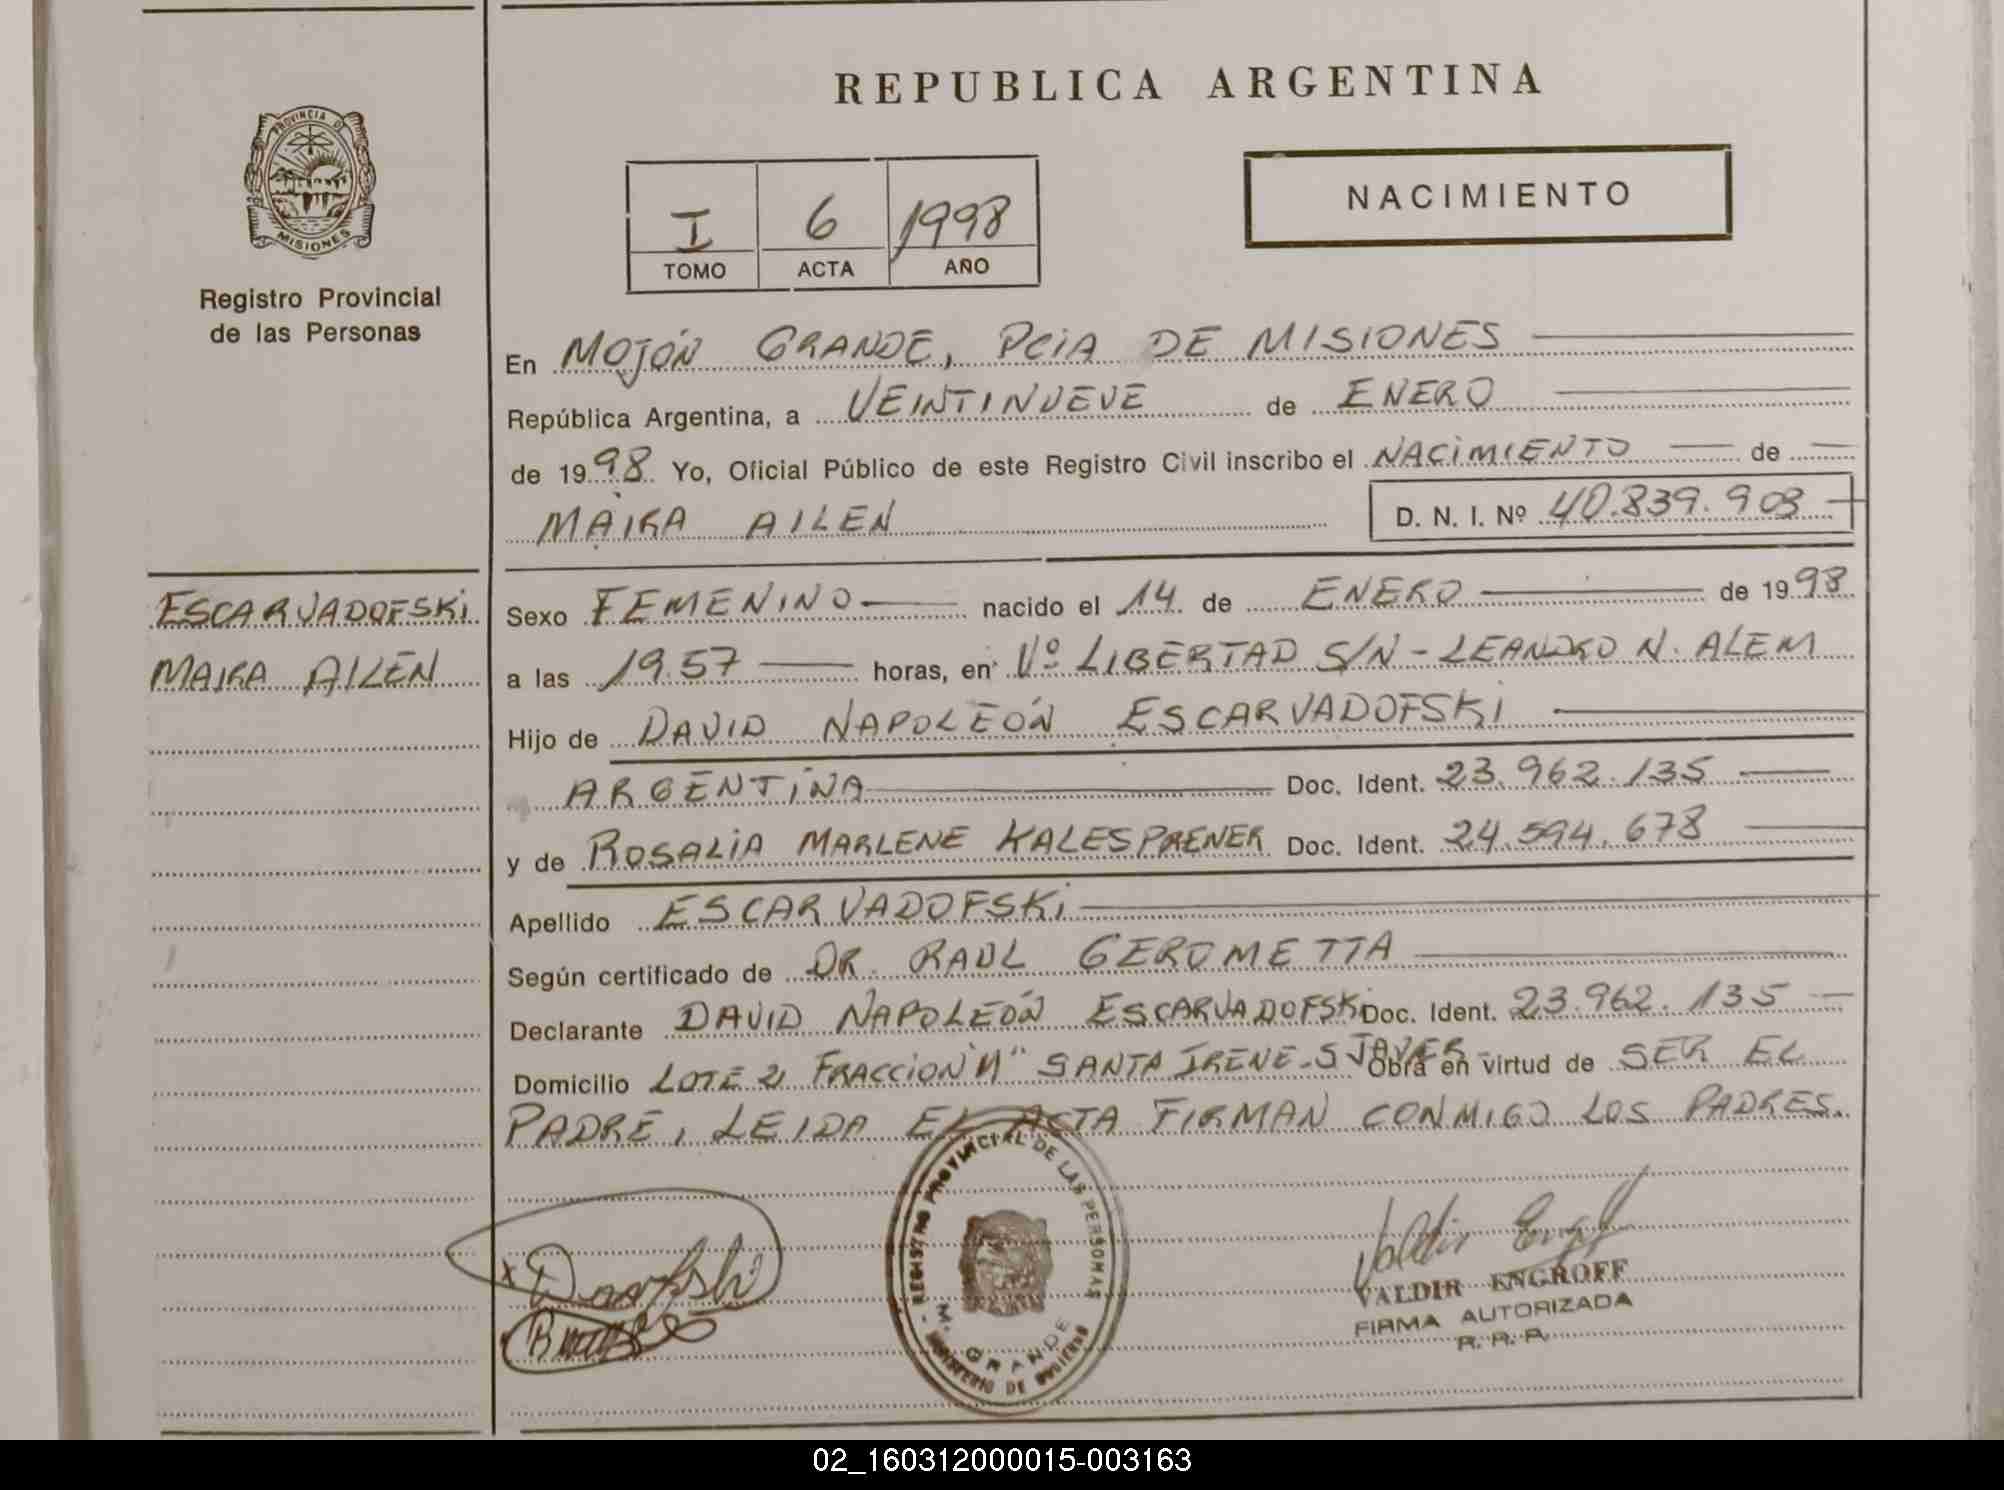 REPUBLICA ARGENTINA
NACIMIENTO
I 6 1998
TOMO ACTA AÑO
PROVINCIA DE
MISIONES
Registro Provincial
de las Personas
En MOJÓN GRANDE, PCIA DE MISIONES
República Argentina, a VEINTINUEVE de ENERO
de 1998 Yo, Oficial Público de este Registro Civil inscribo el NACIMIENTO de
MAIRA AILEN D. N. I. Nº 40.839.903
ESCARVADOFSKI
MAIRA AILEN
Sexo FEMENINO nacido el 14 de ENERO de 1998
a las 19.57 horas, en Vº LIBERTAD S/N - LEANDRO N. ALEM
Hijo de DAVID NAPOLEÓN ESCARVADOFSKI
ARGENTINA Doc. Ident. 23.962.135
y de ROSALIA MARLENE KALESPRENER Doc. Ident. 24.594.678
Apellido ESCARVADOFSKI
Según certificado de DR. RAUL GEROMETTA
Declarante DAVID NAPOLEÓN ESCARVADOFSKI Doc. Ident. 23.962.135
Domicilio LOTE 21 FRACCION "N" SANTA IRENE - S JAVIER - Obra en virtud de SER EL
PADRE, LEIDA EL ACTA FIRMAN CONMIGO LOS PADRES.
REGISTRO PROVINCIAL DE LAS PERSONAS
M. GRANDE
MINISTERIO DE GOBIERNO
Valdir
VALDIR ENGROFF
FIRMA AUTORIZADA
R. P. P.
02_160312000015-003163